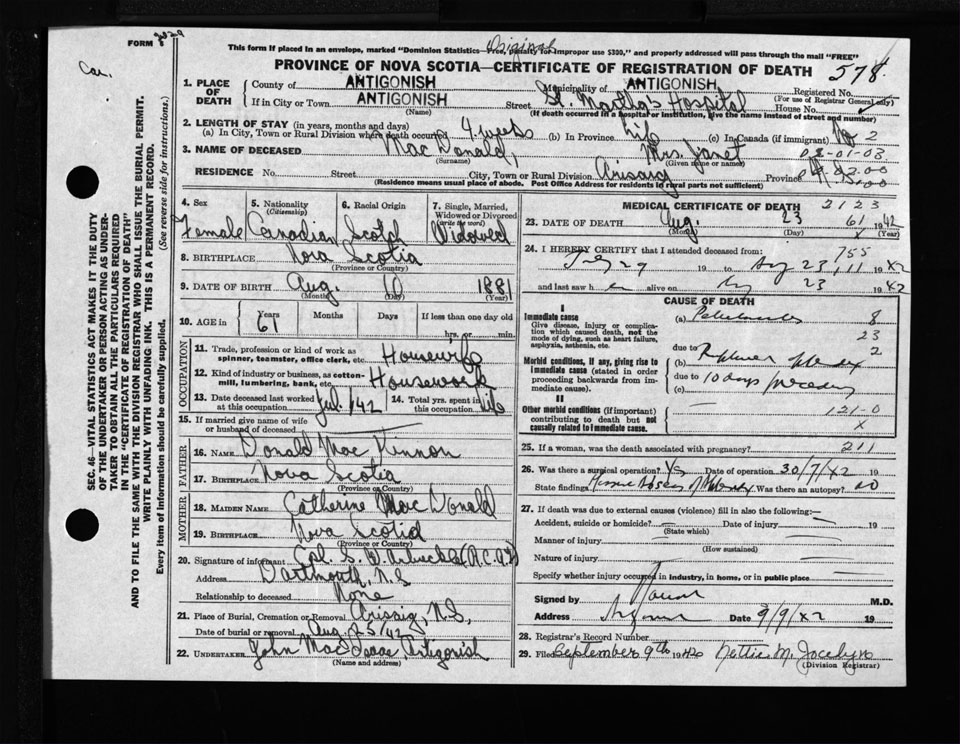 FORM
Original
This form if placed in an envelope, marked "Dominion Statistics—Free, penalty for improper use $300," and properly addressed will pass through the mail "FREE"
Car.
PROVINCE OF NOVA SCOTIA—CERTIFICATE OF REGISTRATION OF DEATH 578
1. PLACE OF DEATH County of ANTIGONISH Municipality of ANTIGONISH Registered No.
(For use of Registrar General only)
If in City or Town ANTIGONISH Street St. Martha's Hospital House No.
(Name) (If death occurred in a hospital or institution, give the name instead of street and number)
2. LENGTH OF STAY (in years, months and days)
(a) In City, Town or Rural Division where death occurred 4 weeks (b) In Province life (c) In Canada (if immigrant) 2
3. NAME OF DECEASED MacDonald, Mrs. Janet 02-01-03
(Surname) (Given name or names)
RESIDENCE No. Street City, Town or Rural Division Arisaig Province
(Residence means usual place of abode. Post Office Address for residents in rural parts not sufficient)
4. Sex 5. Nationality (Citizenship) 6. Racial Origin 7. Single, Married, Widowed or Divorced (write the word)
Female Canadian Scotch Widowed
8. BIRTHPLACE Nova Scotia
(Province or Country)
9. DATE OF BIRTH Aug. 10 1881
(Month) (Day) (Year)
10. AGE in Years Months Days If less than one day old
61 hrs. or min.
OCCUPATION
11. Trade, profession or kind of work as spinner, teamster, office clerk, etc. Housewife
12. Kind of industry or business, as cotton-mill, lumbering, bank, etc. Housework
13. Date deceased last worked at this occupation Jul. 1942 14. Total yrs. spent in this occupation life
15. If married give name of wife or husband of deceased
FATHER
16. NAME Donald MacKinnon
17. BIRTHPLACE Nova Scotia
(Province or Country)
MOTHER
18. MAIDEN NAME Catherine MacDonald
19. BIRTHPLACE Nova Scotia
(Province or Country)
20. Signature of informant (R.C.A.F)
Address Dartmouth, N.S
Relationship to deceased None
21. Place of Burial, Cremation or Removal Arisaig, N.S,
Date of burial or removal Aug. 25/42
22. UNDERTAKER John MacIsaac Antigonish
(Name and address)
MEDICAL CERTIFICATE OF DEATH 2123
23. DATE OF DEATH Aug. 23 61 1942
(Month) (Day) (Year)
24. I HEREBY CERTIFY that I attended deceased from: 755
July 29 19 to Aug 23, 11 1942
and last saw h er alive on Aug 23 1942
CAUSE OF DEATH
I
Immediate cause
Give disease, injury or complication which caused death, not the mode of dying, such as heart failure, asphyxia, asthenia, etc.
(a) 8
23
due to 2
Morbid conditions, if any, giving rise to immediate cause (stated in order proceeding backwards from immediate cause).
(b)
due to 10 days
(c)
II
Other morbid conditions (if important) contributing to death but not causally related to immediate cause.
121-0
X
25. If a woman, was the death associated with pregnancy? 211
26. Was there a surgical operation? Ys Date of operation 30/7/42 19
State findings Was there an autopsy? no
27. If death was due to external causes (violence) fill in also the following:
Accident, suicide or homicide? Date of injury 19
(State which)
Manner of injury
(How sustained)
Nature of injury
Specify whether injury occurred in industry, in home, or in public place
Signed by M.D.
Address Date 9/9/42 19
28. Registrar's Record Number
29. Filed September 9th 1942 Nettie M. Jocelyn
(Division Registrar)
SEC. 46—VITAL STATISTICS ACT MAKES IT THE DUTY
OF THE UNDERTAKER OR PERSON ACTING AS UNDERTAKER
TO OBTAIN ALL THE PARTICULARS REQUIRED
IN THE "CERTIFICATE OF REGISTRATION OF DEATH"
AND TO FILE THE SAME WITH THE DIVISION REGISTRAR WHO SHALL ISSUE THE BURIAL PERMIT.
WRITE PLAINLY WITH UNFADING INK. THIS IS A PERMANENT RECORD.
Every item of information should be carefully supplied. (See reverse side for instructions.)